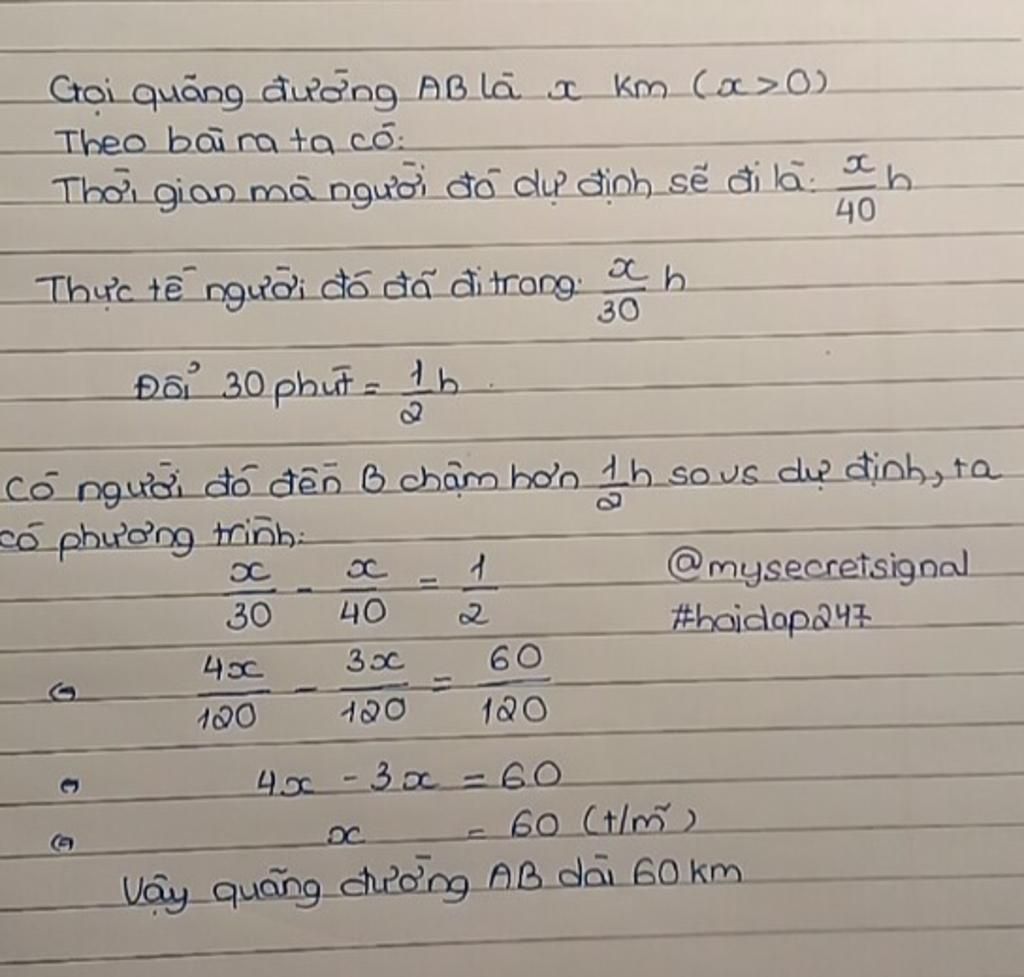 Gọi quãng đường AB là x km (x>0)
Theo bài ra ta có:
Thời gian mà người đó dự định sẽ đi là: x/40 h
Thực tế người đó đã đi trong: x/30 h
Đổi 30 phút = 1/2 h.
Có người đó đến B chậm hơn 1/2 h so vs dự định, ta
có phương trình:
x/30 - x/40 = 1/2
@mysecretsignal
#hoidap247
⇔ 4x/120 - 3x/120 = 60/120
⇔ 4x - 3x = 60
⇔ x = 60 (t/m)
Vậy quãng đường AB dài 60 km